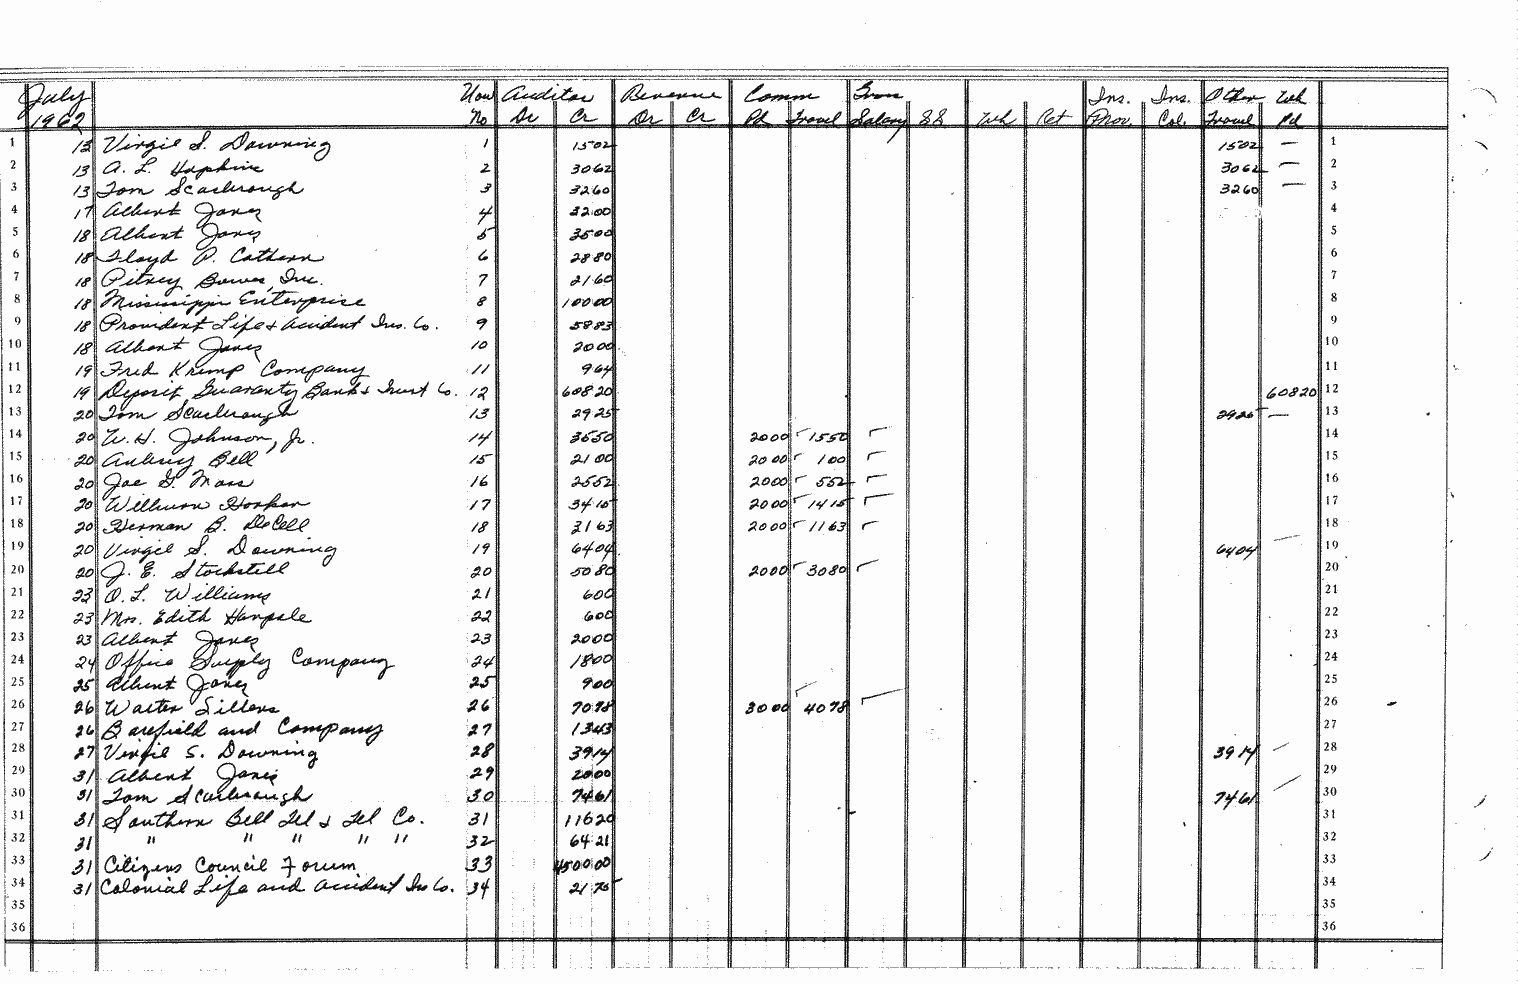 July Vou Auditor Revenue Comm Gross Ins. Ins. Other Wh
1962 No Dr Cr Dr Cr Pd Travel Salary SS Wh Ret Prov. Col. Travel Pd
1 13 Virgil S. Downing 1 1502 1502 — 1
2 13 A. L. Hopkins 2 3062 3062 — 2
3 13 Tom Scarbrough 3 3260 3260 — 3
4 17 Albert Jones 4 3200 4
5 18 Albert Jones 5 3500 5
6 18 Floyd P. 6 2880 6
7 18 Pitney Bowes, Inc. 7 2160 7
8 18 Mississippi Enterprise 8 10000 8
9 18 Provident Life & Accident Ins. Co. 9 5883 9
10 18 Albert Jones 10 2000 10
11 19 Fred Krump Company 11 964 11
12 19 Deposit Guaranty Bank & Trust Co. 12 60820 60820 12
13 20 Tom Scarbrough 13 2925 2925 — 13
14 20 W. H. Johnson, Jr. 14 3550 2000 1550 14
15 20 Aubrey Bell 15 2100 2000 100 15
16 20 Joe G. Moss 16 2552 2000 552 16
17 20 Wilburn Hooker 17 3415 2000 1415 17
18 20 Herman B. DeCell 18 3163 2000 1163 18
19 20 Virgil S. Downing 19 6404 6404 — 19
20 20 J. E. Stockstill 20 5080 2000 3080 20
21 23 O. L. Williams 21 600 21
22 23 Mrs. Edith 22 600 22
23 23 Albert Jones 23 2000 23
24 24 Office Supply Company 24 1800 24
25 25 Albert Jones 25 900 25
26 26 Walter Sillers 26 7078 3000 4078 26
27 26 Barefield and Company 27 1343 27
28 27 Virgil S. Downing 28 3914 3914 28
29 31 Albert Jones 29 2000 29
30 31 Tom Scarbrough 30 7461 7461 30
31 31 Southern Bell Tel & Tel Co. 31 11620 31
32 31 " " " " " 32 6421 32
33 31 Citizens Council Forum 33 450000 33
34 31 Colonial Life and Accident Ins Co. 34 2175 34
35 35
36 36